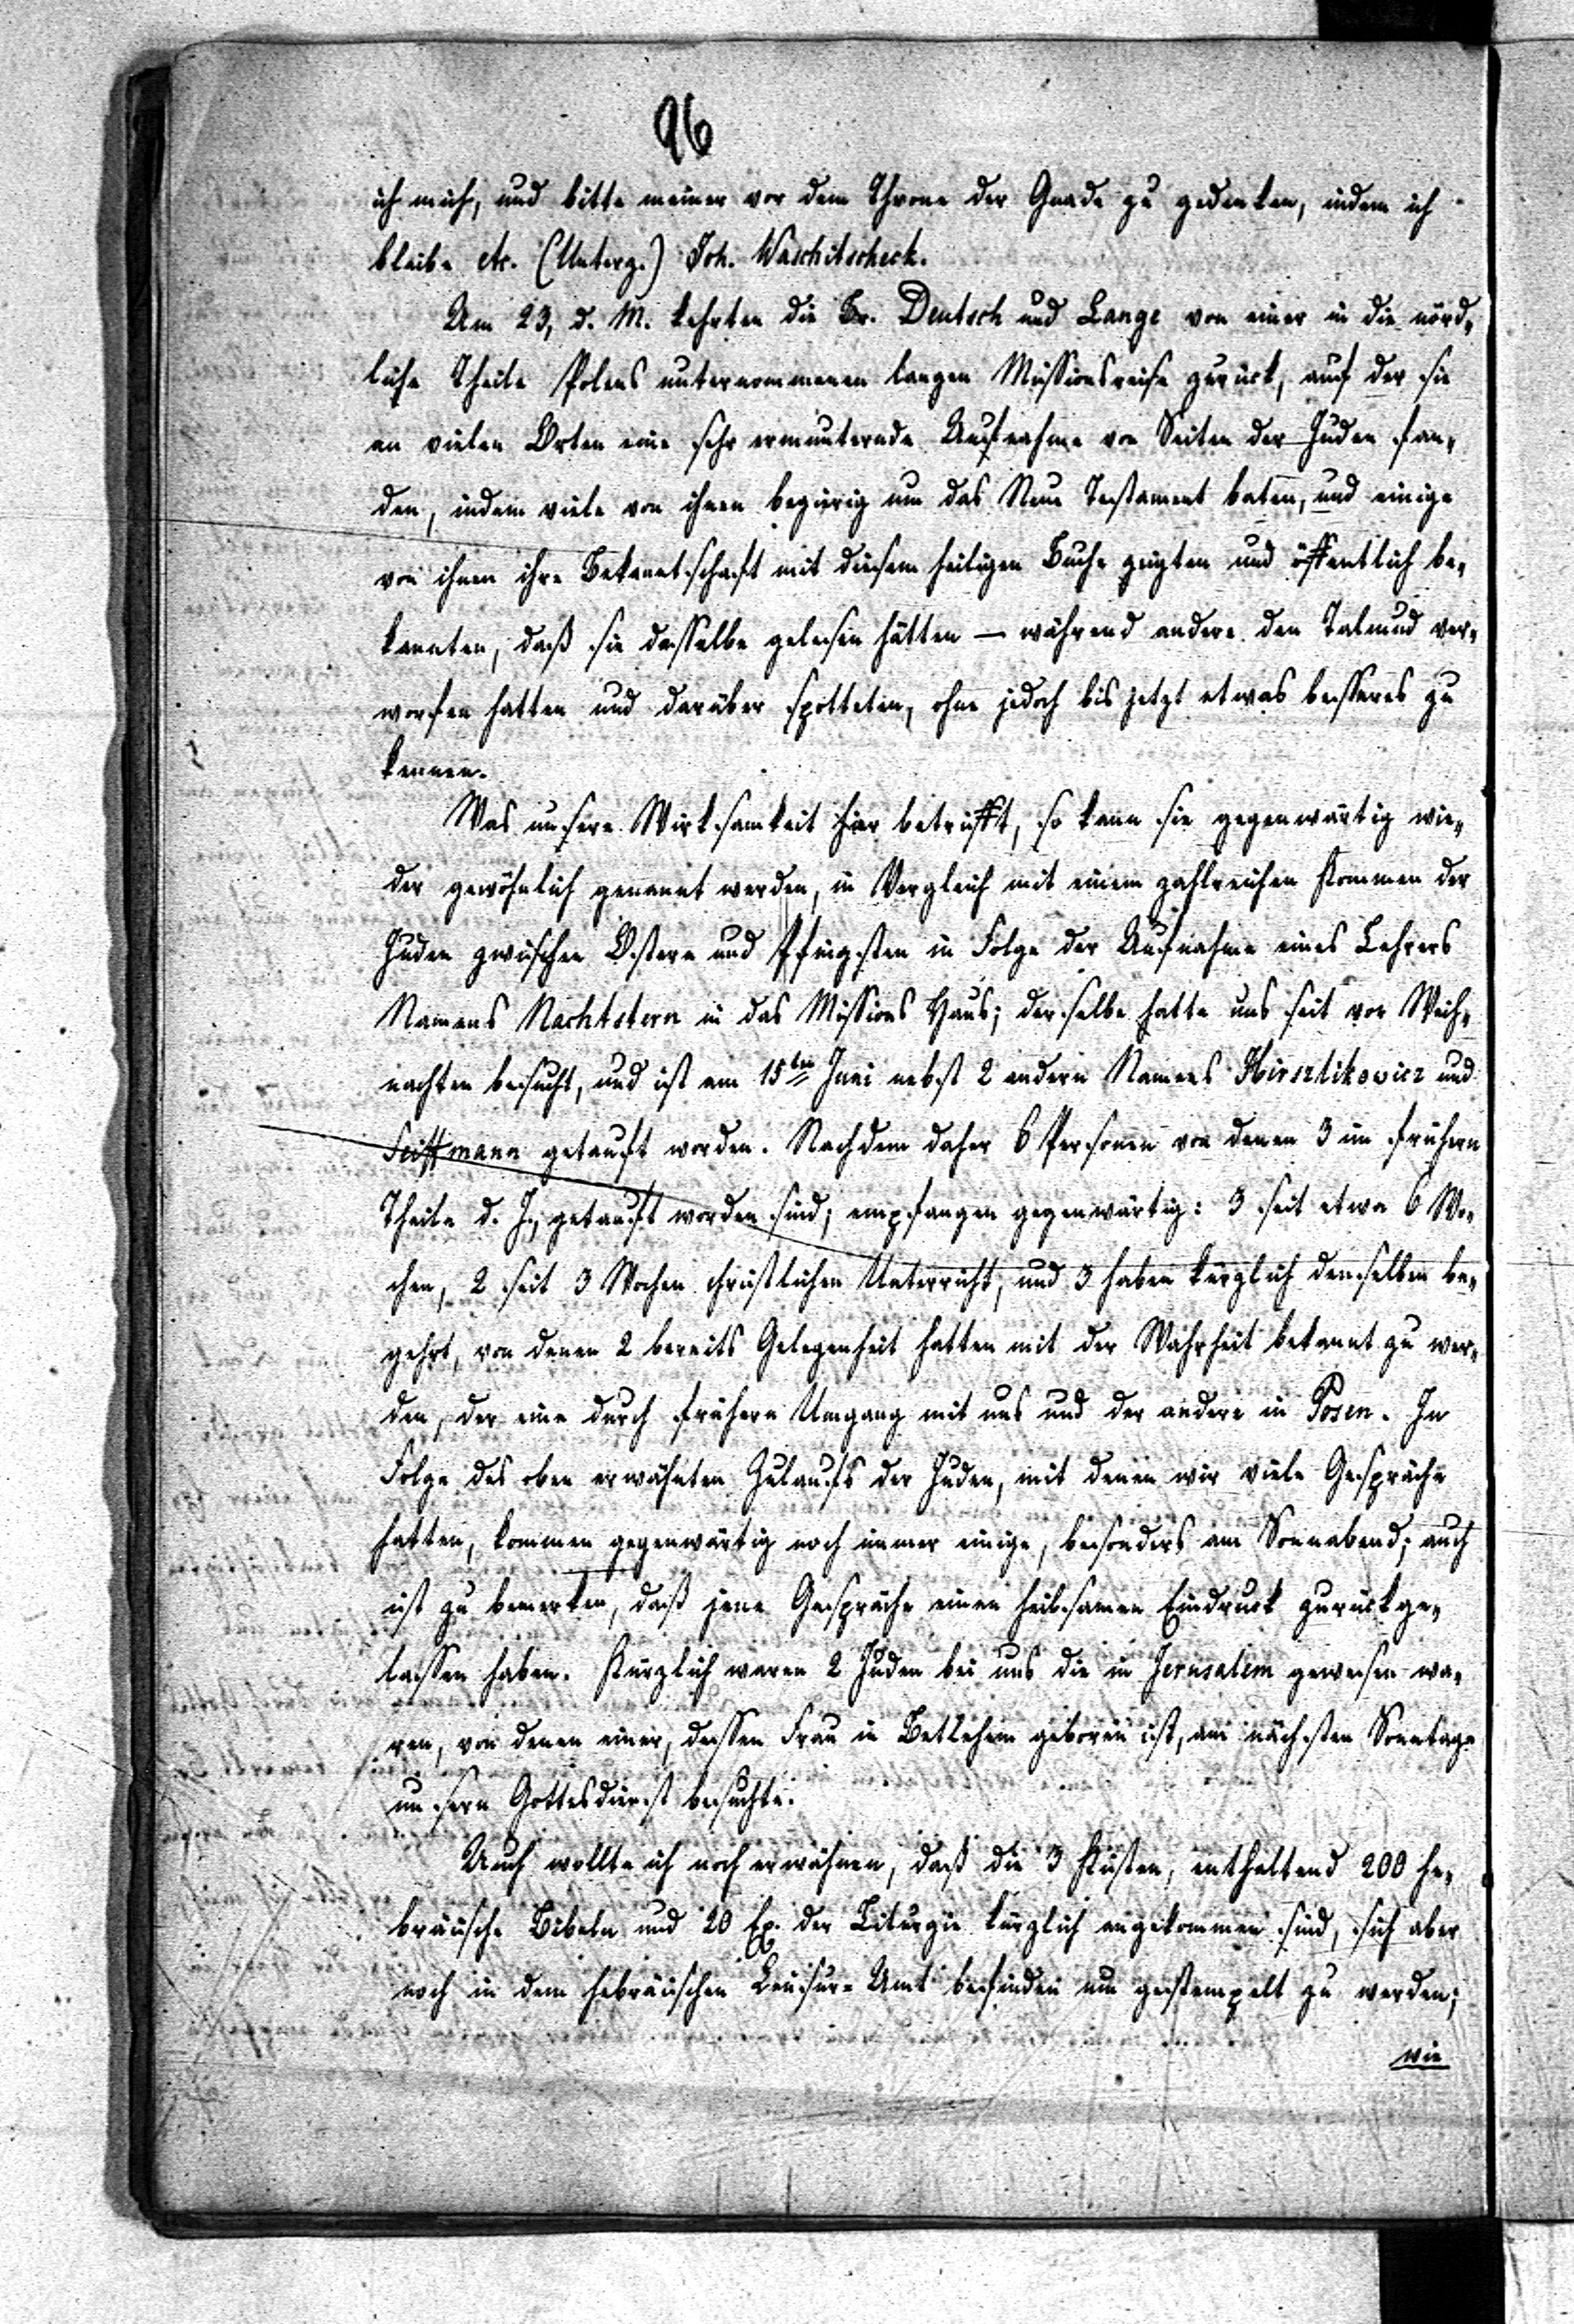 96
ich mich, und bitte meiner vor dem Throne der Gnade zu gedenken, indem ich
bleibe etc. (Unterz.) Joh. Waschitscheck.
Am 23, d. M. kehrten die Br. Deutsch und Lange von einer in die nörd-
liche Theile Polens unternommenen langen Missionsreise zurück, auf der sie
an vielen Orten eine sehr ermunternde Aufnahme von Seiten der Juden fan-
den, indem viele von ihnen begierig um das Neue Testament baten, und einige
von ihnen ihre Bekanntschaft mit diesem heiligen Buche zeigten und öffentlich be-
kannten, daß sie dasselbe gelesen hätten — während andere den Talmud ver-
worfen hatten und darüber spotteten, ohne jedoch bis jetzt etwas besseres zu
kennen.
Was unsere Wirksamkeit hier betrifft, so kann sie gegenwärtig wie-
der gewöhnlich genannt werden, in Vergleich mit einem zahlreichen Kommen der
Juden zwischen Ostern und Pfingsten in Folge der Aufnahme eines Lehrers
Namens Nachtstern in das Missions Haus; derselbe hatte uns seit vor Weih-
nachten besucht, und ist am 15ten Juni nebst 2 andern Namens Hirsztikowicz und
Seiffmann getauft worden. Nachdem daher 6 Personen von denen 3 im frühern
Theile d. J., getauft worden sind; empfangen gegenwärtig: 3 seit etwa 6 Wo-
chen, 2 seit 3 Wochen christlichen Unterricht, und 3 haben kürzlich denselben be-
gehrt, von denen 2 bereits Gelegenheit hatten mit der Wahrheit bekannt zu wer-
den, der eine durch frühern Umgang mit uns und der andere in Posen. In
Folge des oben erwähnten Zulaufs der Juden, mit denen wir viele Gespräche
hatten, kommen gegenwärtig noch immer einige, besonders am Sonnabend; auch
ist zu bemerken, daß jene Gespräche einen heilsamen Eindruck zurückge-
lassen haben. Kürzlich waren 2 Juden bei uns die in Jerusalem gewesen wa-
ren, von denen einer, dessen Frau in Betlehem geboren ist, am nächsten Sonntage
unsern Gottesdienst besuchte.
Auch wollte ich noch erwähnen, daß die 3 Kisten, enthaltend 200 he-
bräische Bibeln und 20 Ex. der Liturgie kürzlich angekommen sind, sich aber
noch in dem hebräischen Censur-Amt befinden um gestempelt zu werden;
wie